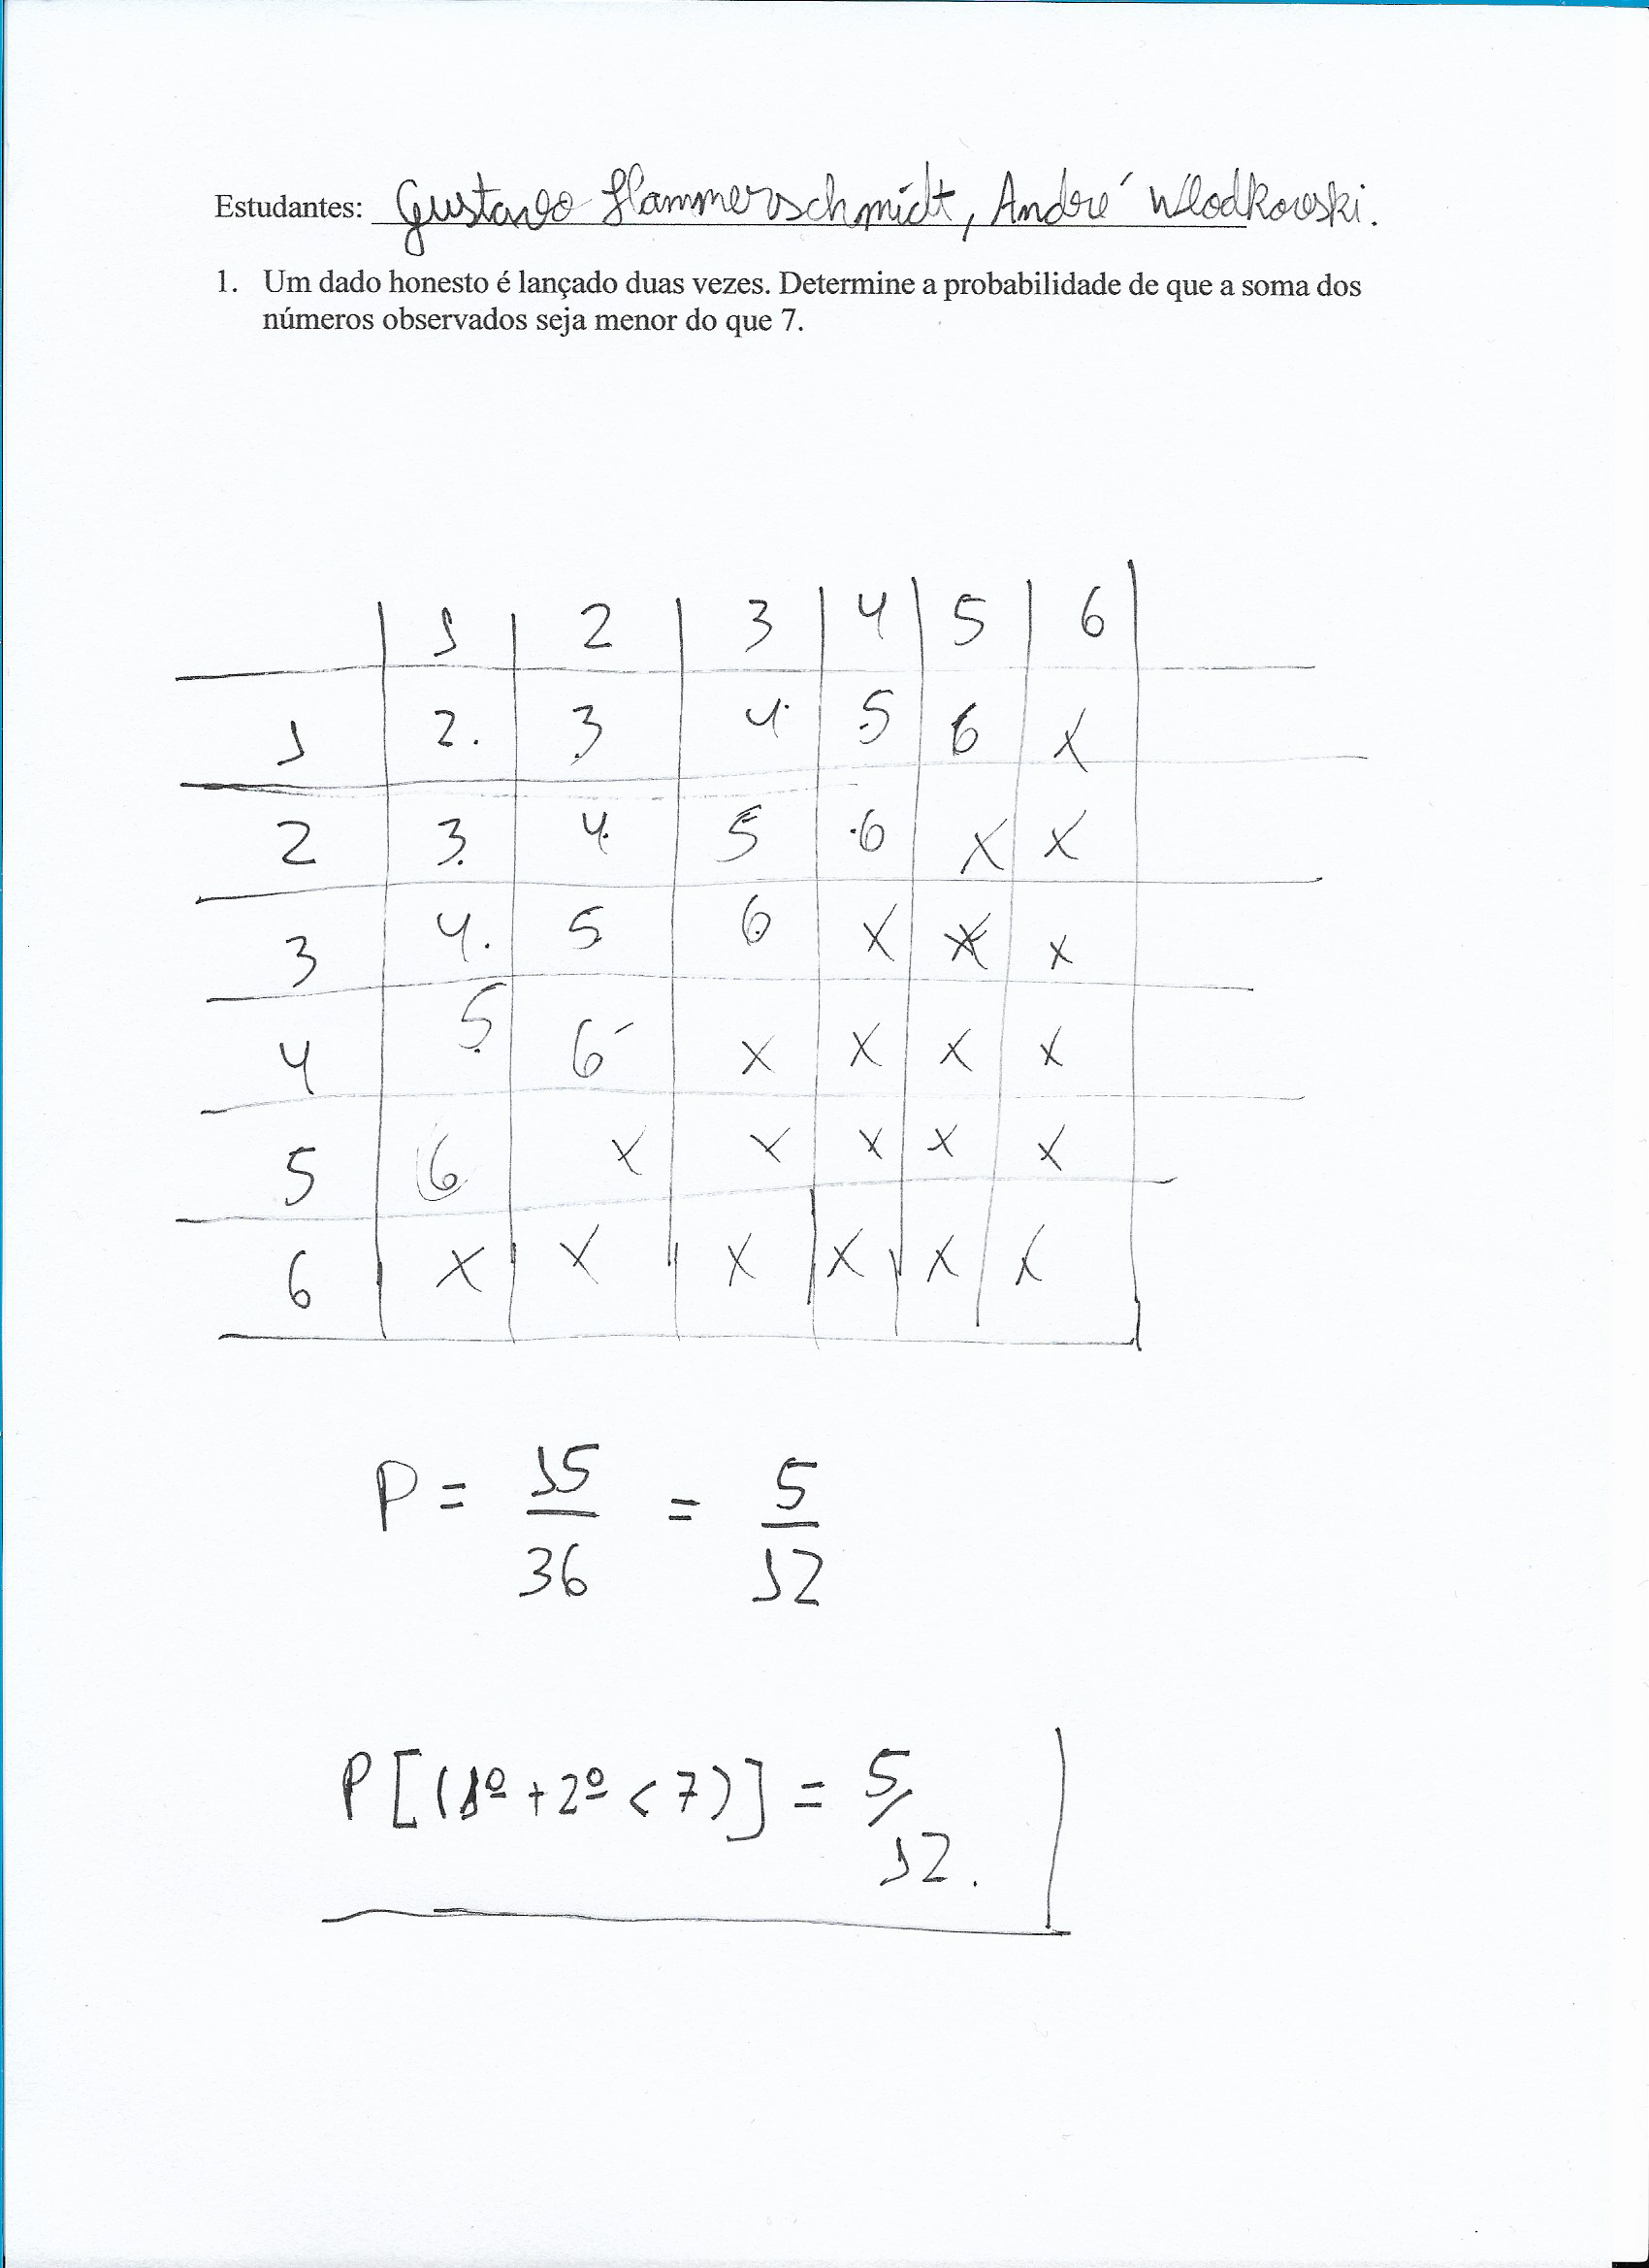 Estudantes: Gustavo Hammerschmidt, André Wlodkowski.
1. Um dado honesto é lançado duas vezes. Determine a probabilidade de que a soma dos
números observados seja menor do que 7.
1 2 3 4 5 6
1 2. 3 4. 5 6 X
2 3. 4. 5 .6 X X
3 4. 5 6 X X X
4 5 6 X X X X
5 6 X X X X X
6 X X X X X X
P = 15/36 = 5/12
P[(1º + 2º < 7)] = 5/12.